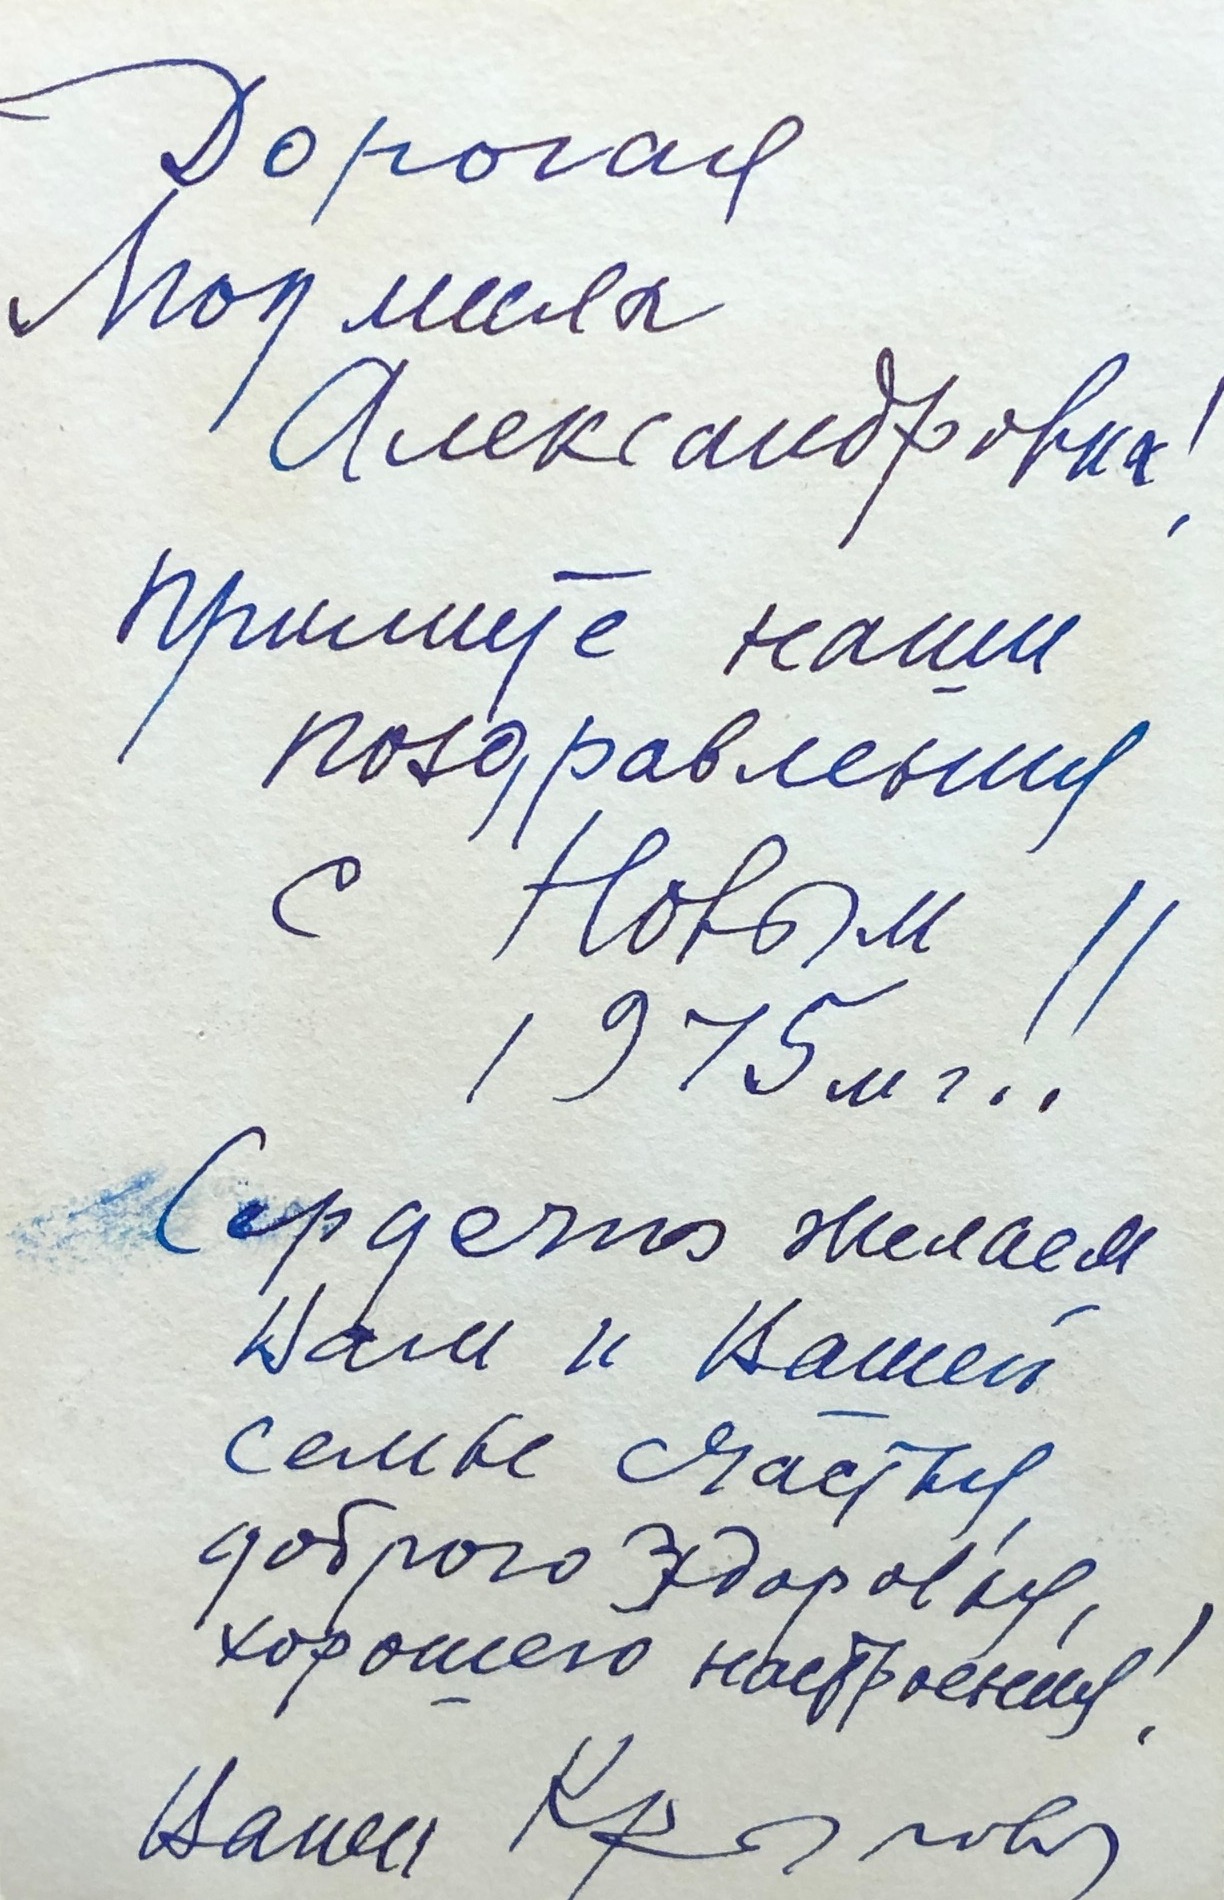 Дорогая
Людмила
Александровна!
Примите наши
поздравления
с Новым
1975м г.!!
Сердечно желаем
Вам и Вашей
семье счастья,
доброго здоровья,
хорошего настроения!
Ваши